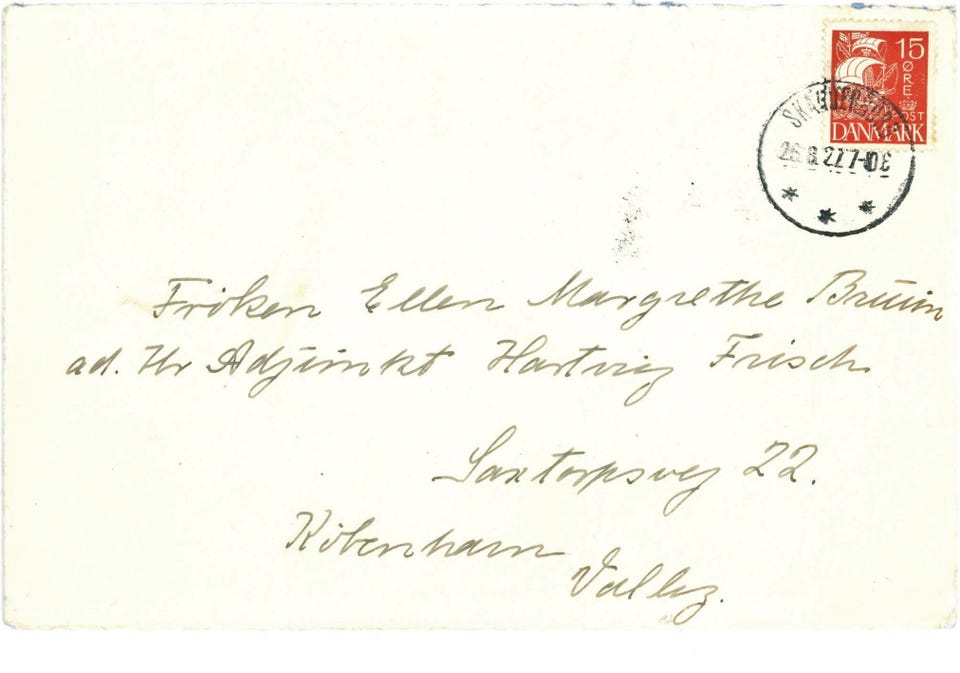 15
ØRE
POST
DANMARK
26.8.27.7-8
Fröken Ellen Margrethe Bruun
ad. Hr Adjunkt Hartvig Frisch
Saxtorpsvej 22.
København
Valby.